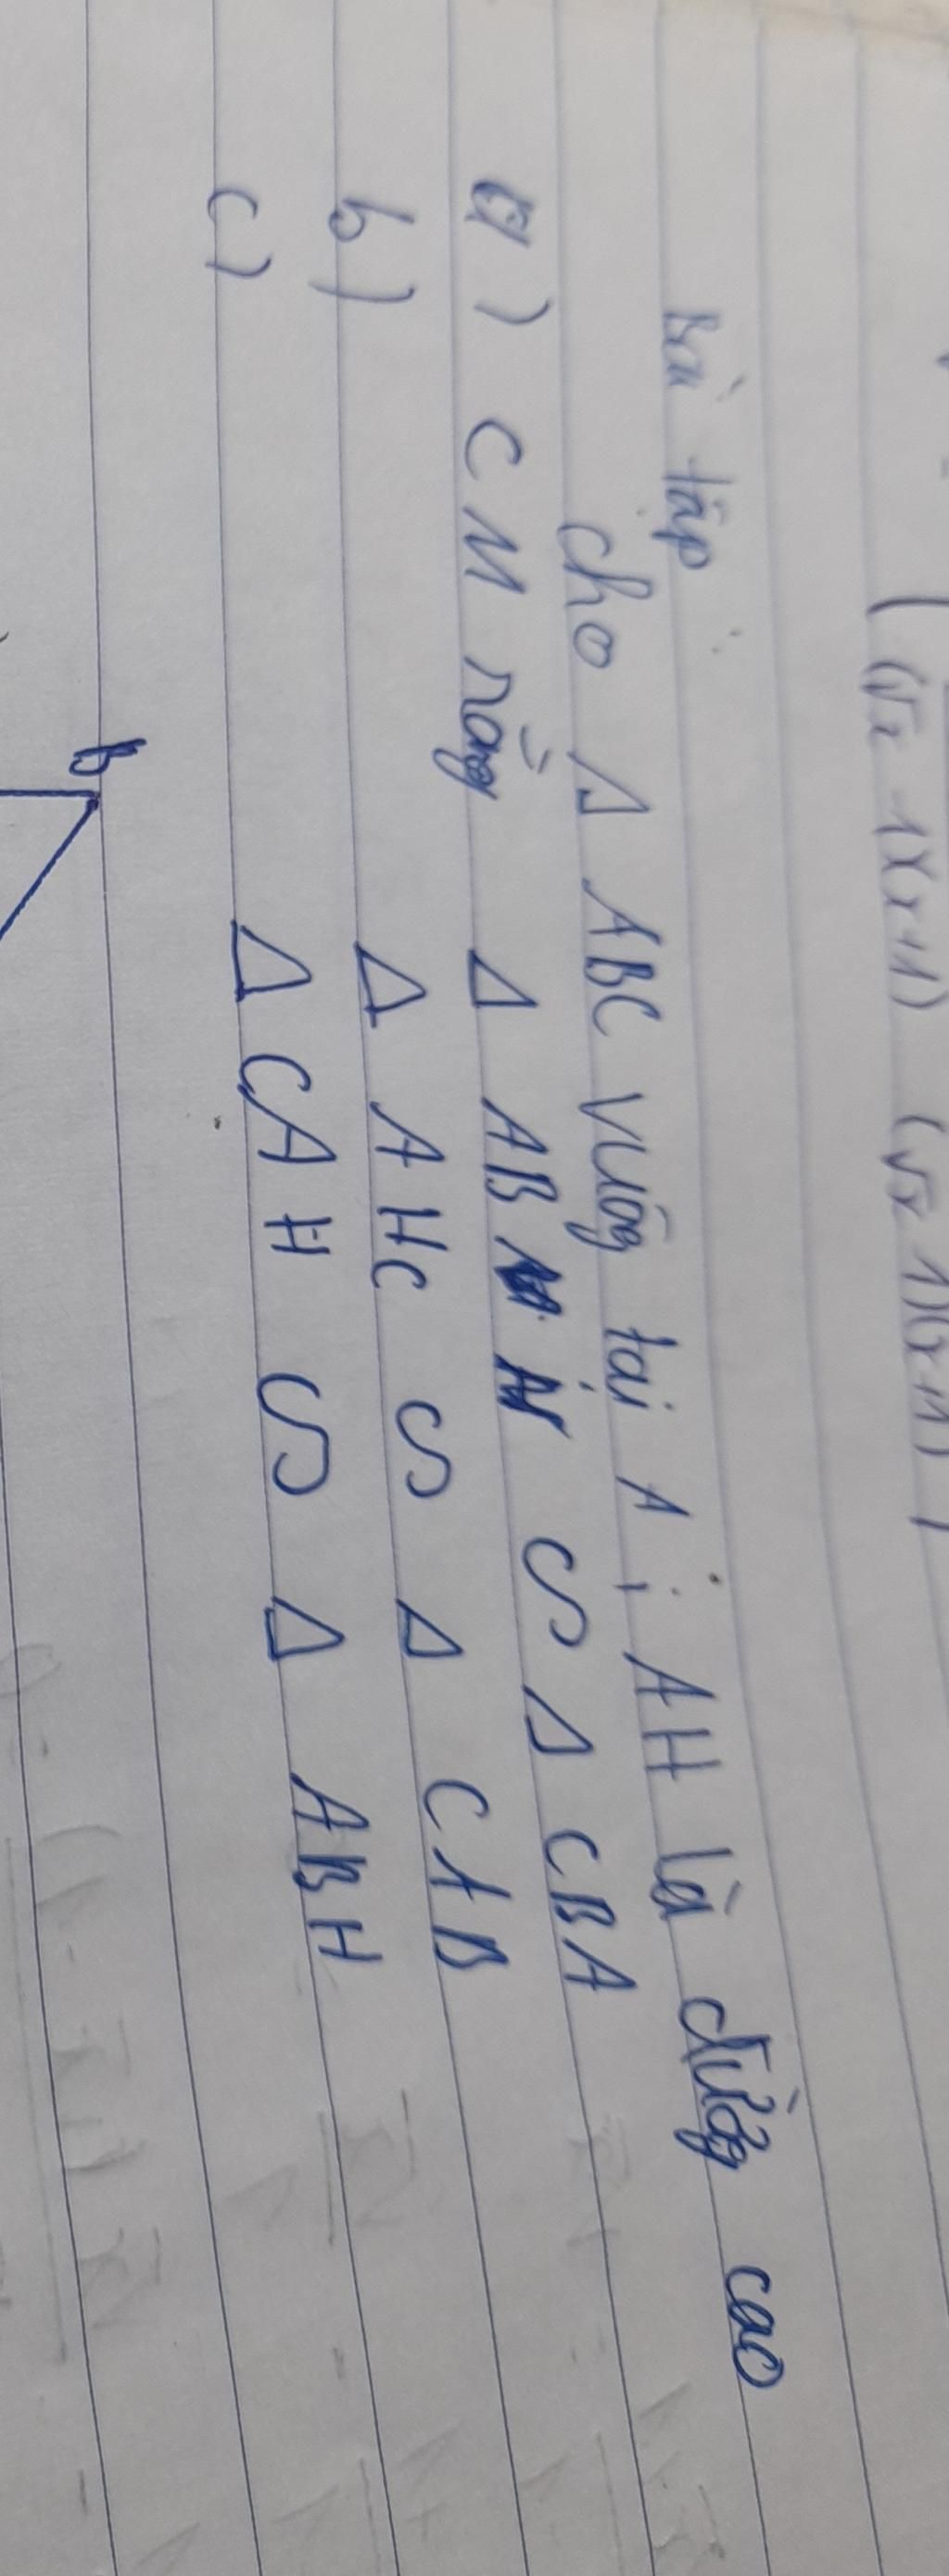 (√x 1)(x+1) (√x 1)(x+1)
Bài tập
Cho Δ ABC vuông tại A ; AH là đường cao
a) CM rằng Δ ABH ∽ Δ CBA
b) Δ AHC ∽ Δ CAB
c) Δ CAH ∽ Δ ABH
B